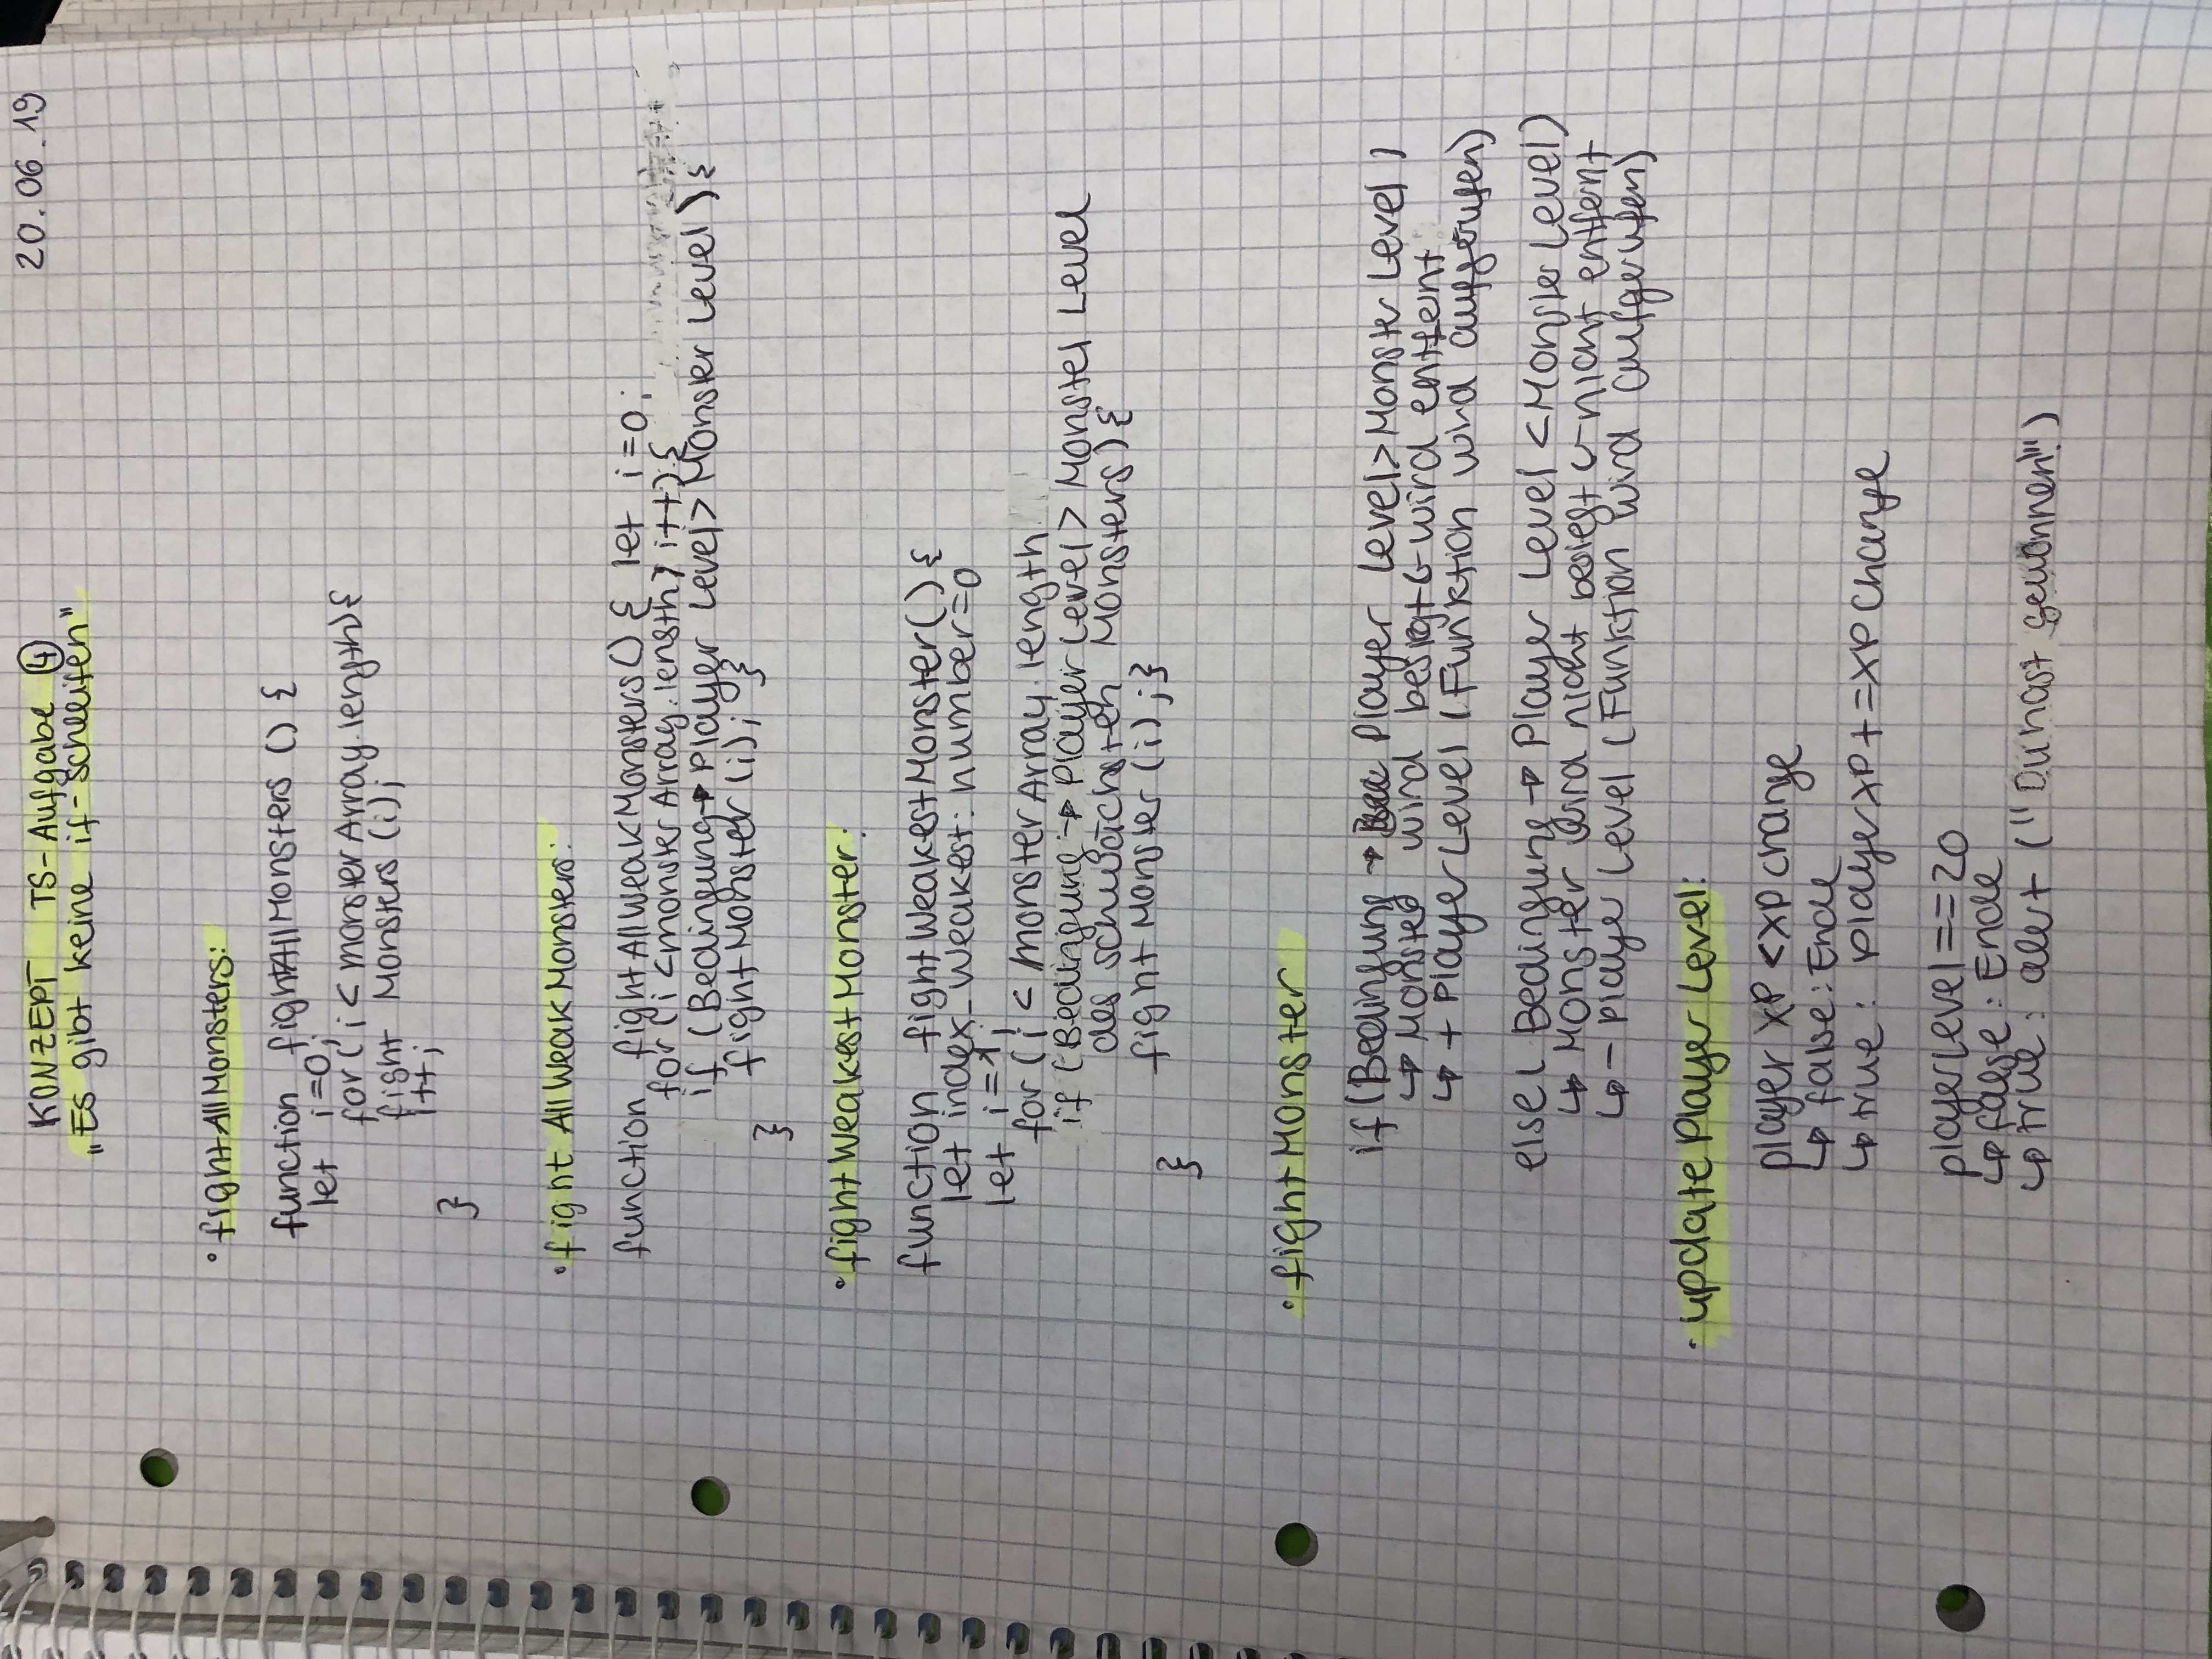 KONZEPT TS-Aufgabe ④
20.06.19
„Es gibt keine if-schleifen"
• fightAllMonsters:
function fightAllMonsters () {
let i=0;
for (i < monsterArray.length) {
fight Monsters (i);
i++;
}
• fight AllWeakMonsters:
function fightAllWeakMonsters() { let i=0;
for (i < monsterArray.length; i++) {
if (Bedingung → Player Level > Monster Level) {
fightMonster (i); }
}
• fightWeakestMonster:
function fightWeakestMonster() {
let index_weakest: number=0
let i=1;
for (i < monsterArray.length
if (Bedingung → Player Level > Monster Level
des schwächsten Monsters) {
fightMonster (i);}
}
• fightMonster
if (Bedingung → Player Level > Monster Level)
↳ Monster wird besiegt & wird entfernt
↳ + Player Level (Funktion wird aufgerufen)
else ( Bedingung → Player Level < Monster Level)
↳ Monster wird nicht besiegt & nicht entfernt
↳ - player Level (Funktion wird aufgerufen)
• update Player Level:
player XP < XP change
↳ false: Ende
↳ true: player XP += XP change
playerLevel == 20
↳ false: Ende
↳ true: alert ("Du hast gewonnen!")